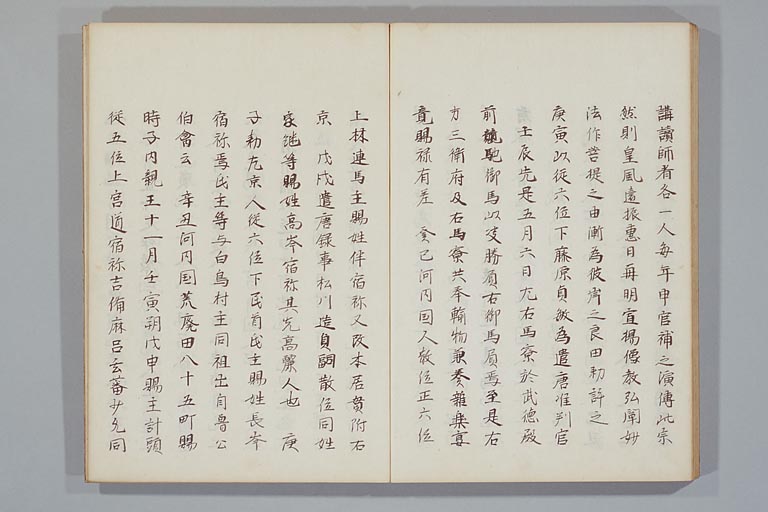 講讀師者各一人每年申官補之演傳此宗
然則皇風遠振惠日再明宣揚像教弘闡妙
法作菩提之由漸為彼岸之良田勅許之
庚寅以從六位下藤原貞敏為遣唐准判官
壬辰先是五月六日尤右馬寮於武德殿
前競馳御馬以決勝負右御馬負焉至是右
方三衛府及右馬寮共奉輸物兼奏雜樂宴
竟賜禄有差 癸巳河内国人散位正六位
上林連馬主賜姓伴宿祢又改本居貫附右
京 戊戌遣唐録事松川造貞嗣散位同姓
家継等賜姓高岑宿祢其先高麗人也 庚
子勅左京人從六位下民首氏主賜姓長岑
宿祢焉氏主等与白鳥村主同祖出自魯公
伯禽云 辛丑河内国荒廢田八十五町賜
時子内親王十一月壬寅朔戊申賜主計頭
從五位上宫道宿祢吉備麻呂玄蕃少允同